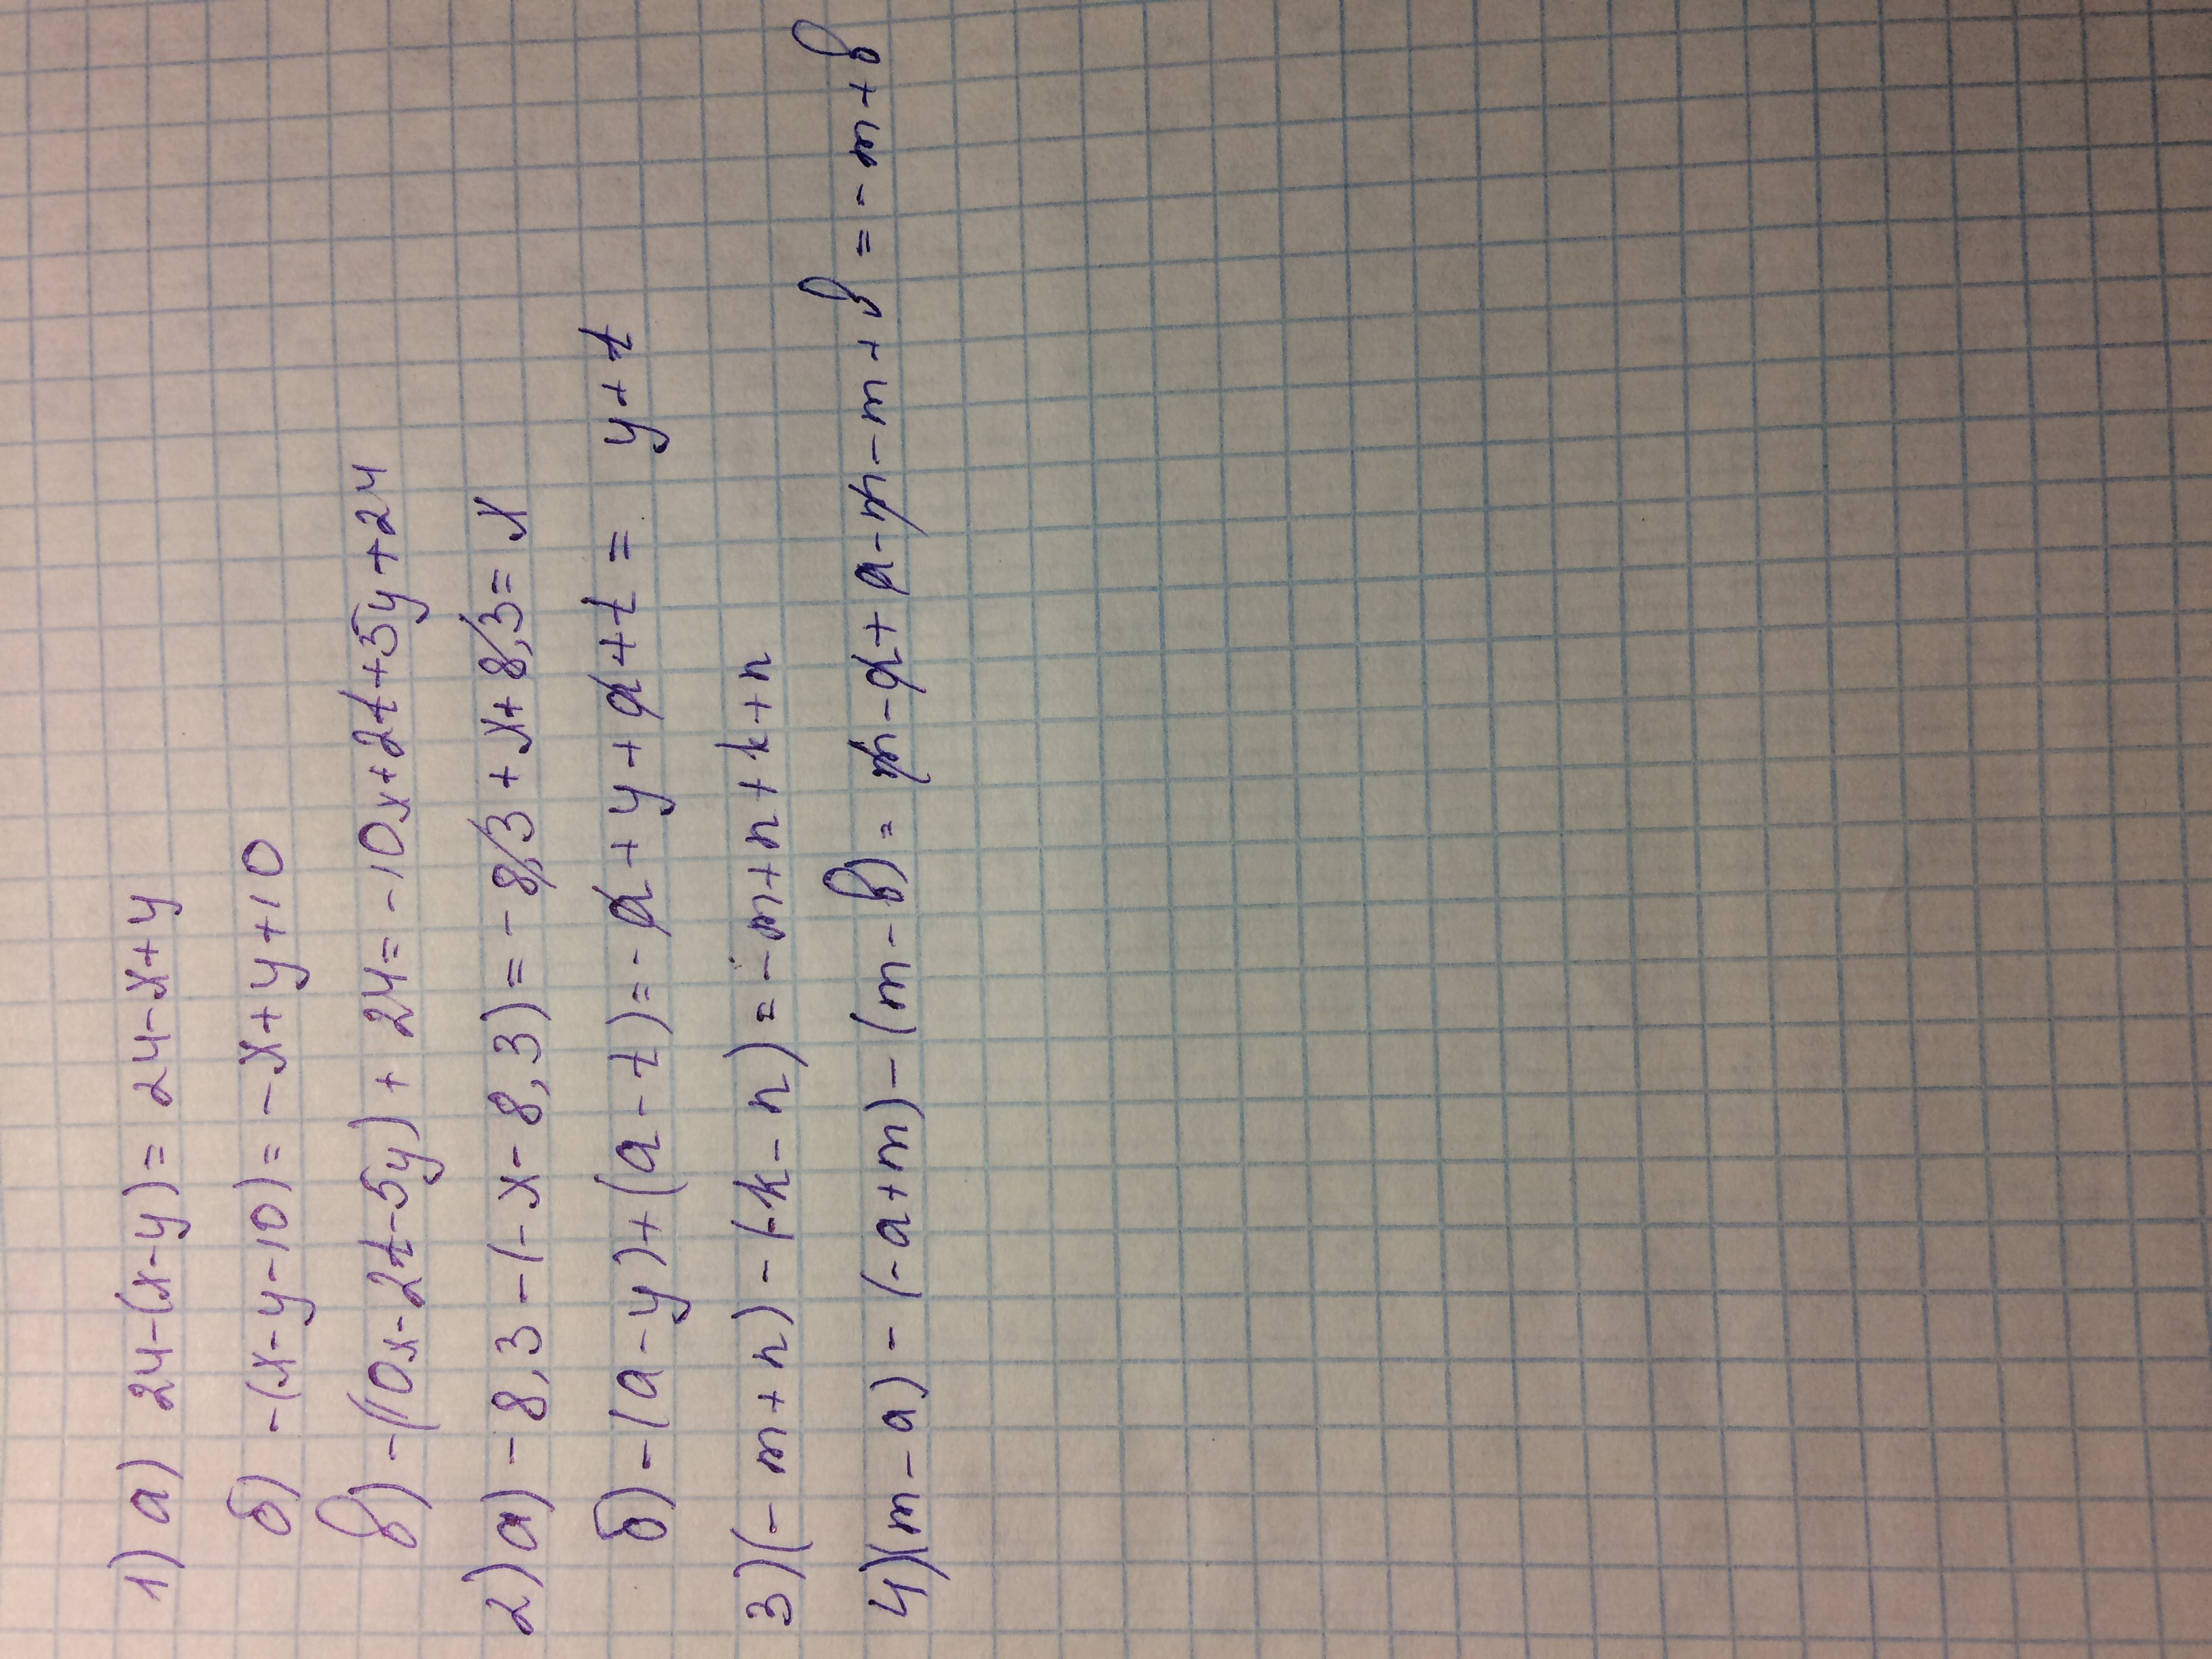 1) а) 24-(x-y)= 24-x+y
б) -(x-y-10)=-x+y+10
в) -(10x-2t-5y)+ 24=-10x+2t+5y+24
2) а) -8,3-(-x-8,3)=-8,3+x+8,3=x
б) -(a-y)+(a-t)=-a+y+a+t= y+t
3)(-m+n)-(-k-n)=-m+n+k+n
4)(m-a)-(-a+m)-(m-в)=m-a+a-m-m+в=-m+в